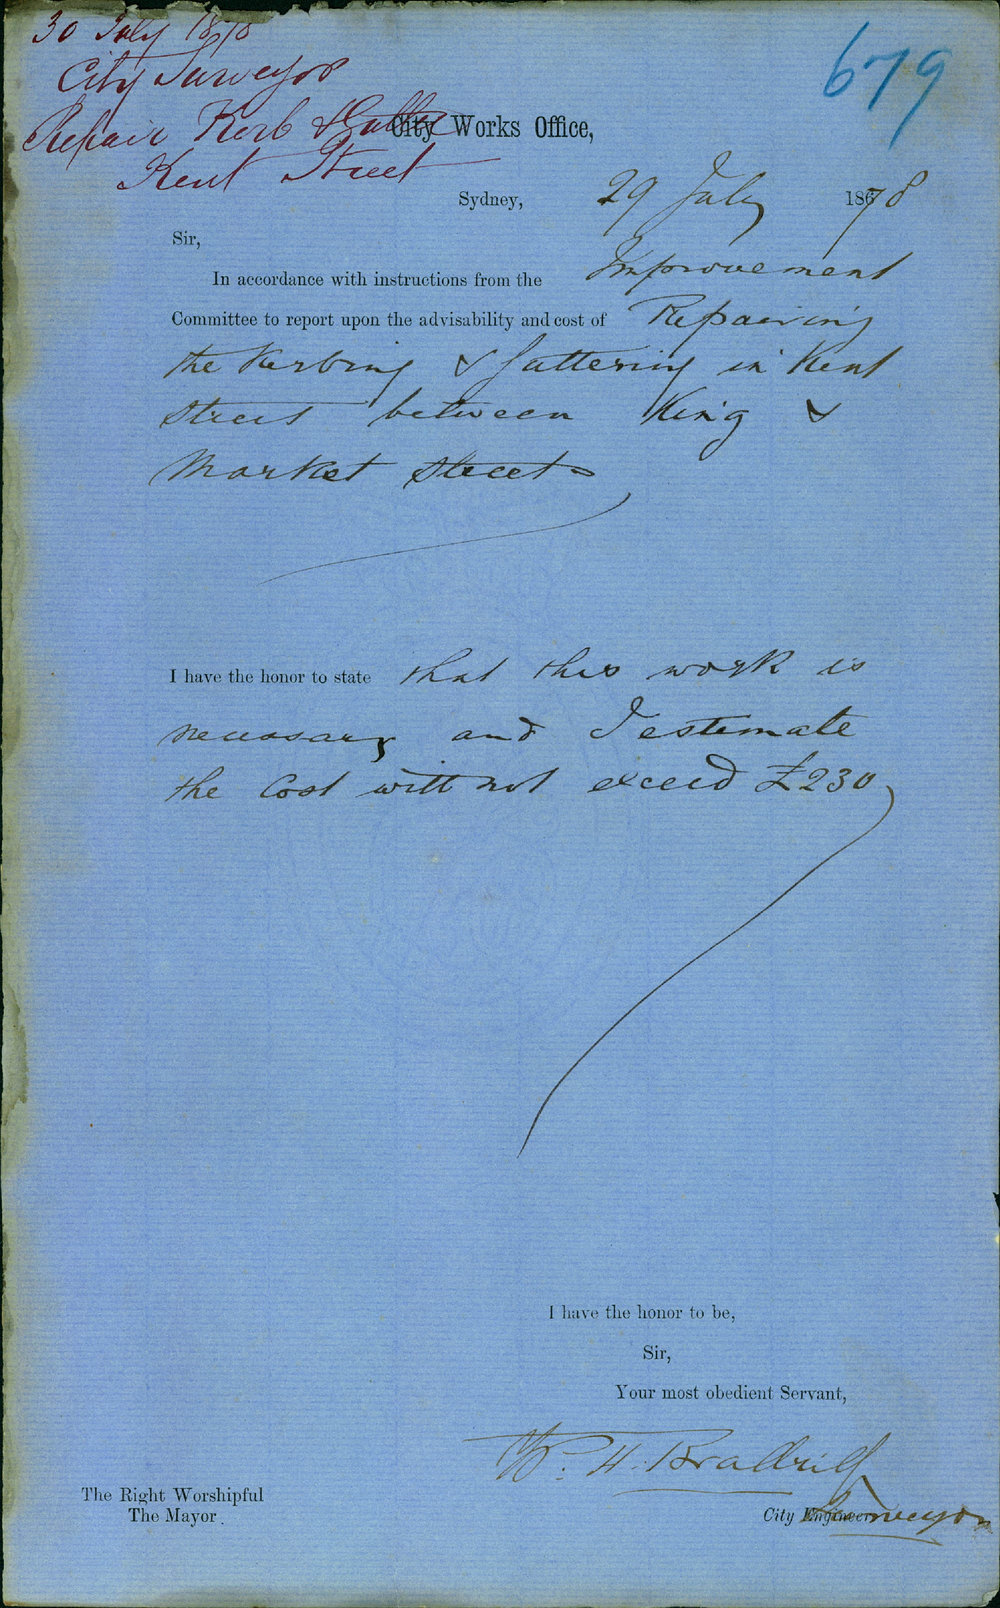 30 July 1878
679
City Surveyor
Repair Kerb & Gutter
Kent Street
City Works Office,
Sydney, 29 July 1878
Sir,
In accordance with instructions from the Improvement
Committee to report upon the advisability and cost of Repairing
the Kerbing & Guttering in Kent
Street between King &
Market Streets
I have the honor to state that this work is
necessary and I estimate
the Cost will not exceed £230
I have the honor to be,
Sir,
Your most obedient Servant,
The Right Worshipful
The Mayor.
City Engineer Surveyor